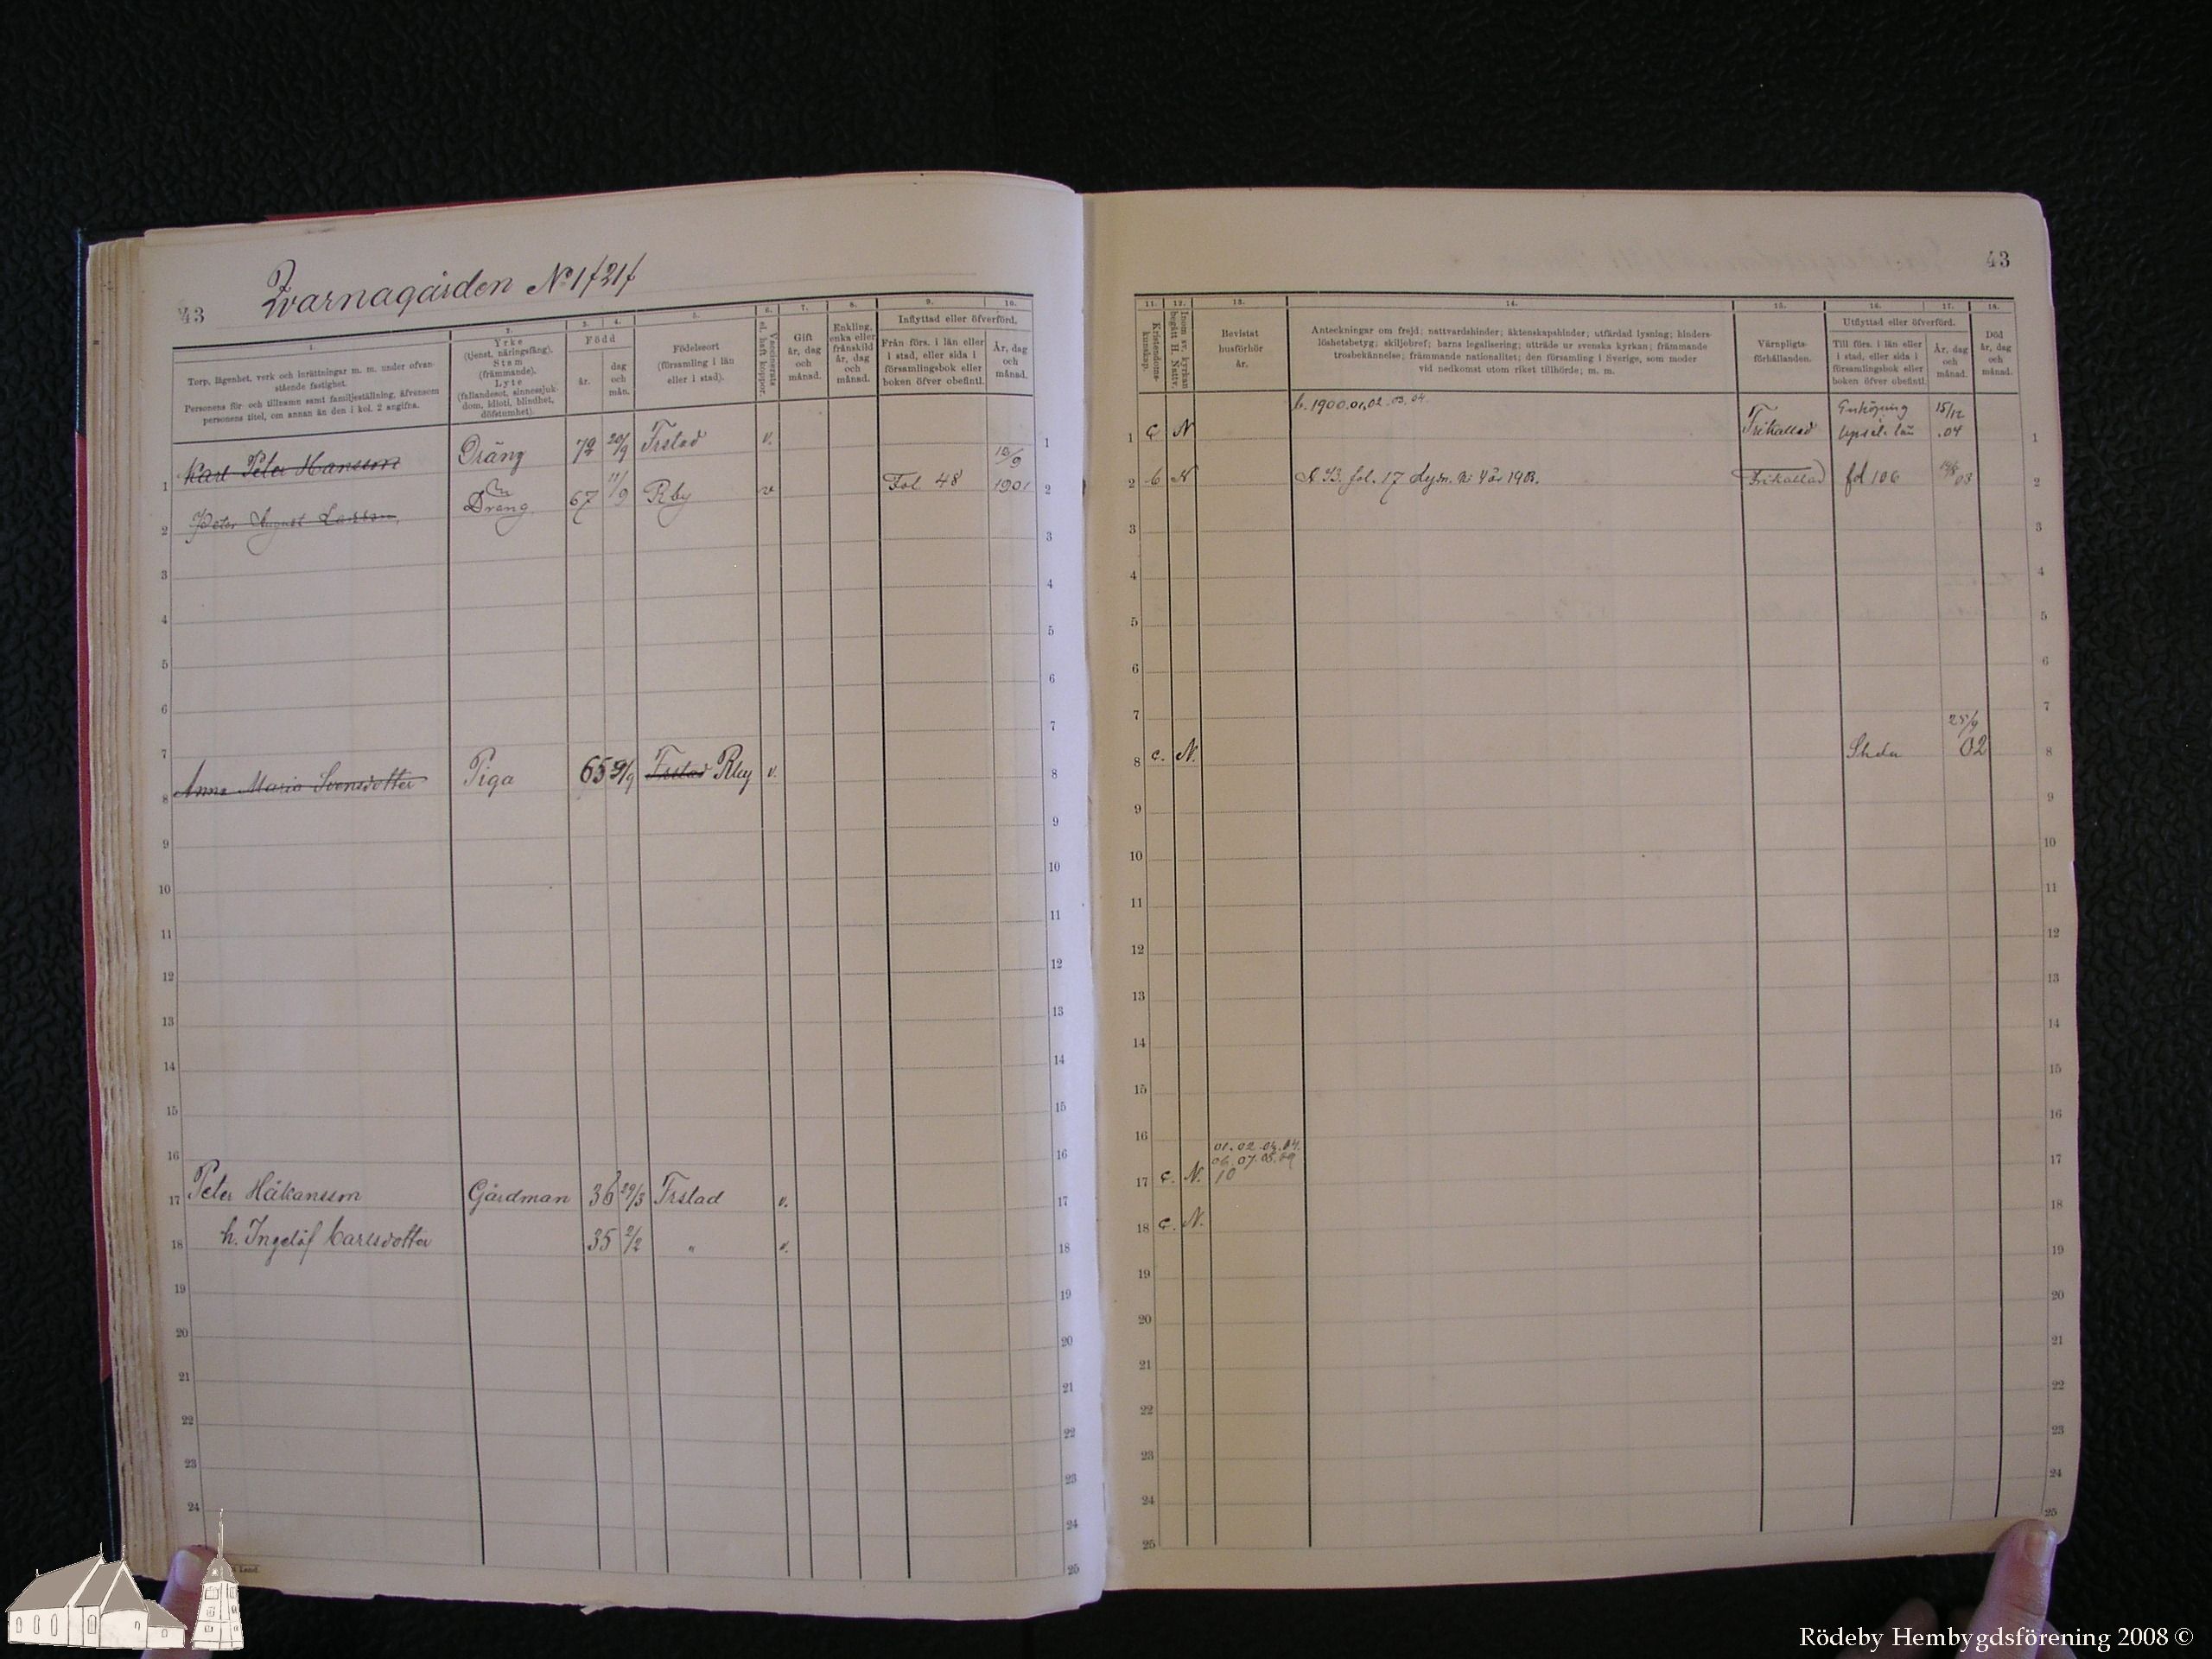 Qvarnagården No 1 /21/
43
1.
Torp, lägenhet, verk och inrättningar m. m. under ofvan-
stående fastighet.
Personens för- och tillnamn samt familjeställning, äfvensom
personens titel, om annan än den i kol. 2 angifna.
2.
Yrke
(tjenst, näringsfång),
Stam
(främmande),
Lyte
(fallandesot, sinnessjuk-
dom, idioti, blindhet,
döfstumhet).
3. 4.
Född
år.
dag
och
mån.
5.
Födelseort
(församling i län
eller i stad).
6.
Vaccinerats
el. haft koppor.
7.
Gift
år, dag
och
månad.
8.
Enkling,
enka eller
frånskild
år, dag
och
månad.
9. 10.
Inflyttad eller öfverförd.
Från förs. i län eller
i stad, eller sida i
församlingsbok eller
boken öfver obefintl.
År, dag
och
månad.
1 Karl Peter Hansson Dräng 72 20/9 Frstad v. 1
2 Peter August Larsson, Dräng 67 11/9 Rby v Fol 48 1901 2
3 3
4 4
5 5
6 6
7 7
8 Anna Maria Svensdotter Piga 65 9/9 Frstad Rby v. 8
9 9
10 10
11 11
12 12
13 13
14 14
15 15
16 16
17 Peter Håkansson Gårdman 36 29/3 Frstad v. 17
18 h. Ingelöf Carlsdotter 35 2/2 " v. 18
19 19
20 20
21 21
22 22
23 23
24 24
25
Lund.
43
11.
Kristendoms-
kunskap.
12.
Inom sv. kyrkan
begått H. Nattv.
13.
Bevistat
husförhör
år.
14.
Anteckningar om frejd; nattvardshinder; äktenskapshinder; utfärdad lysning; hinders-
löshetsbetyg; skiljobref; barns legalisering; utträde ur svenska kyrkan; främmande
trosbekännelse; främmande nationalitet; den församling i Sverige, som moder
vid nedkomst utom riket tillhörde; m. m.
15.
Värnpligts-
förhållanden.
16. 17.
Utflyttad eller öfverförd.
Till förs. i län eller
i stad, eller sida i
församlingsbok eller
boken öfver obefintl.
År, dag
och
månad.
18.
Död
år, dag
och
månad.
b. 1900.01,02.03.04. Enköping 15/12
1 c N Frikallad Upsala län .04 1
2 b N fol. 17 Lysn. No 4 år 1903. Frikallad fol 106 03 2
3 3
4 4
5 5
6 6
7 7
25/9
8 c. N. 02 8
9 9
10 10
11 11
12 12
13 13
14 14
15 15
16 16
01.02.03.04.
06.07.08.09
17 c. N. 10 17
18 c. N. 18
19 19
20 20
21 21
22 22
23 23
24 24
25 25
Rödeby Hembygdsförening 2008 ©